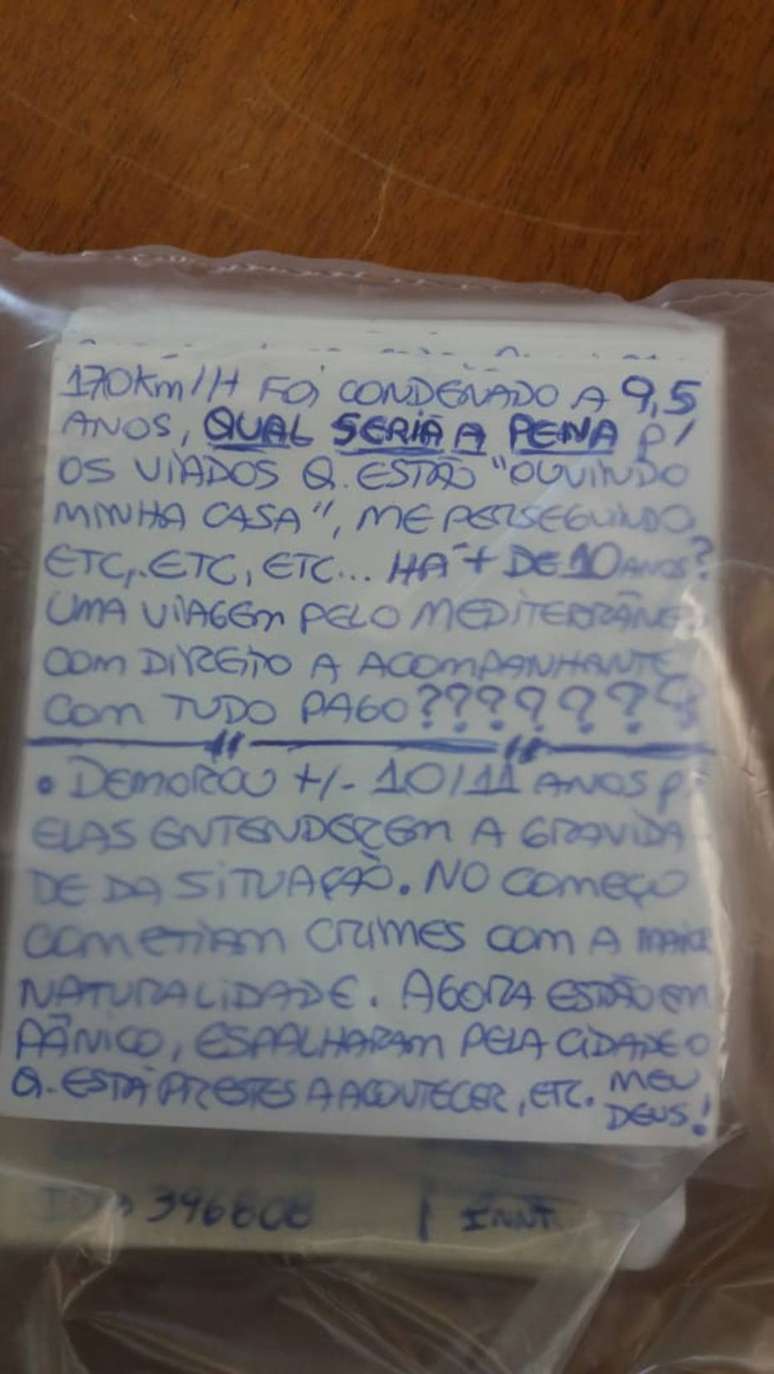 170Km/H FOI CONDENADO A 9,5
ANOS, QUAL SERIA A PENA P/
OS VIADOS Q. ESTÃO "OUVINDO
MINHA CASA", ME PERSEGUINDO,
ETC, ETC, ETC... HÁ + DE 10 ANOS?
UMA VIAGEM PELO
COM DIREITO A ACOMPANHANTE
COM TUDO PAGO???????
• DEMOROU +/- 10/11 ANOS P/
ELAS ENTENDEREM A GRAVIDA
DE DA SITUAÇÃO. NO COMEÇO
COMETIAM CRIMES COM A MAIOR
NATURALIDADE. AGORA ESTÃO EM
PÂNICO, ESPALHARAM PELA CIDADE O
Q. ESTÁ PRESTES A ACONTECER, ETC. MEU
DEUS!
396808